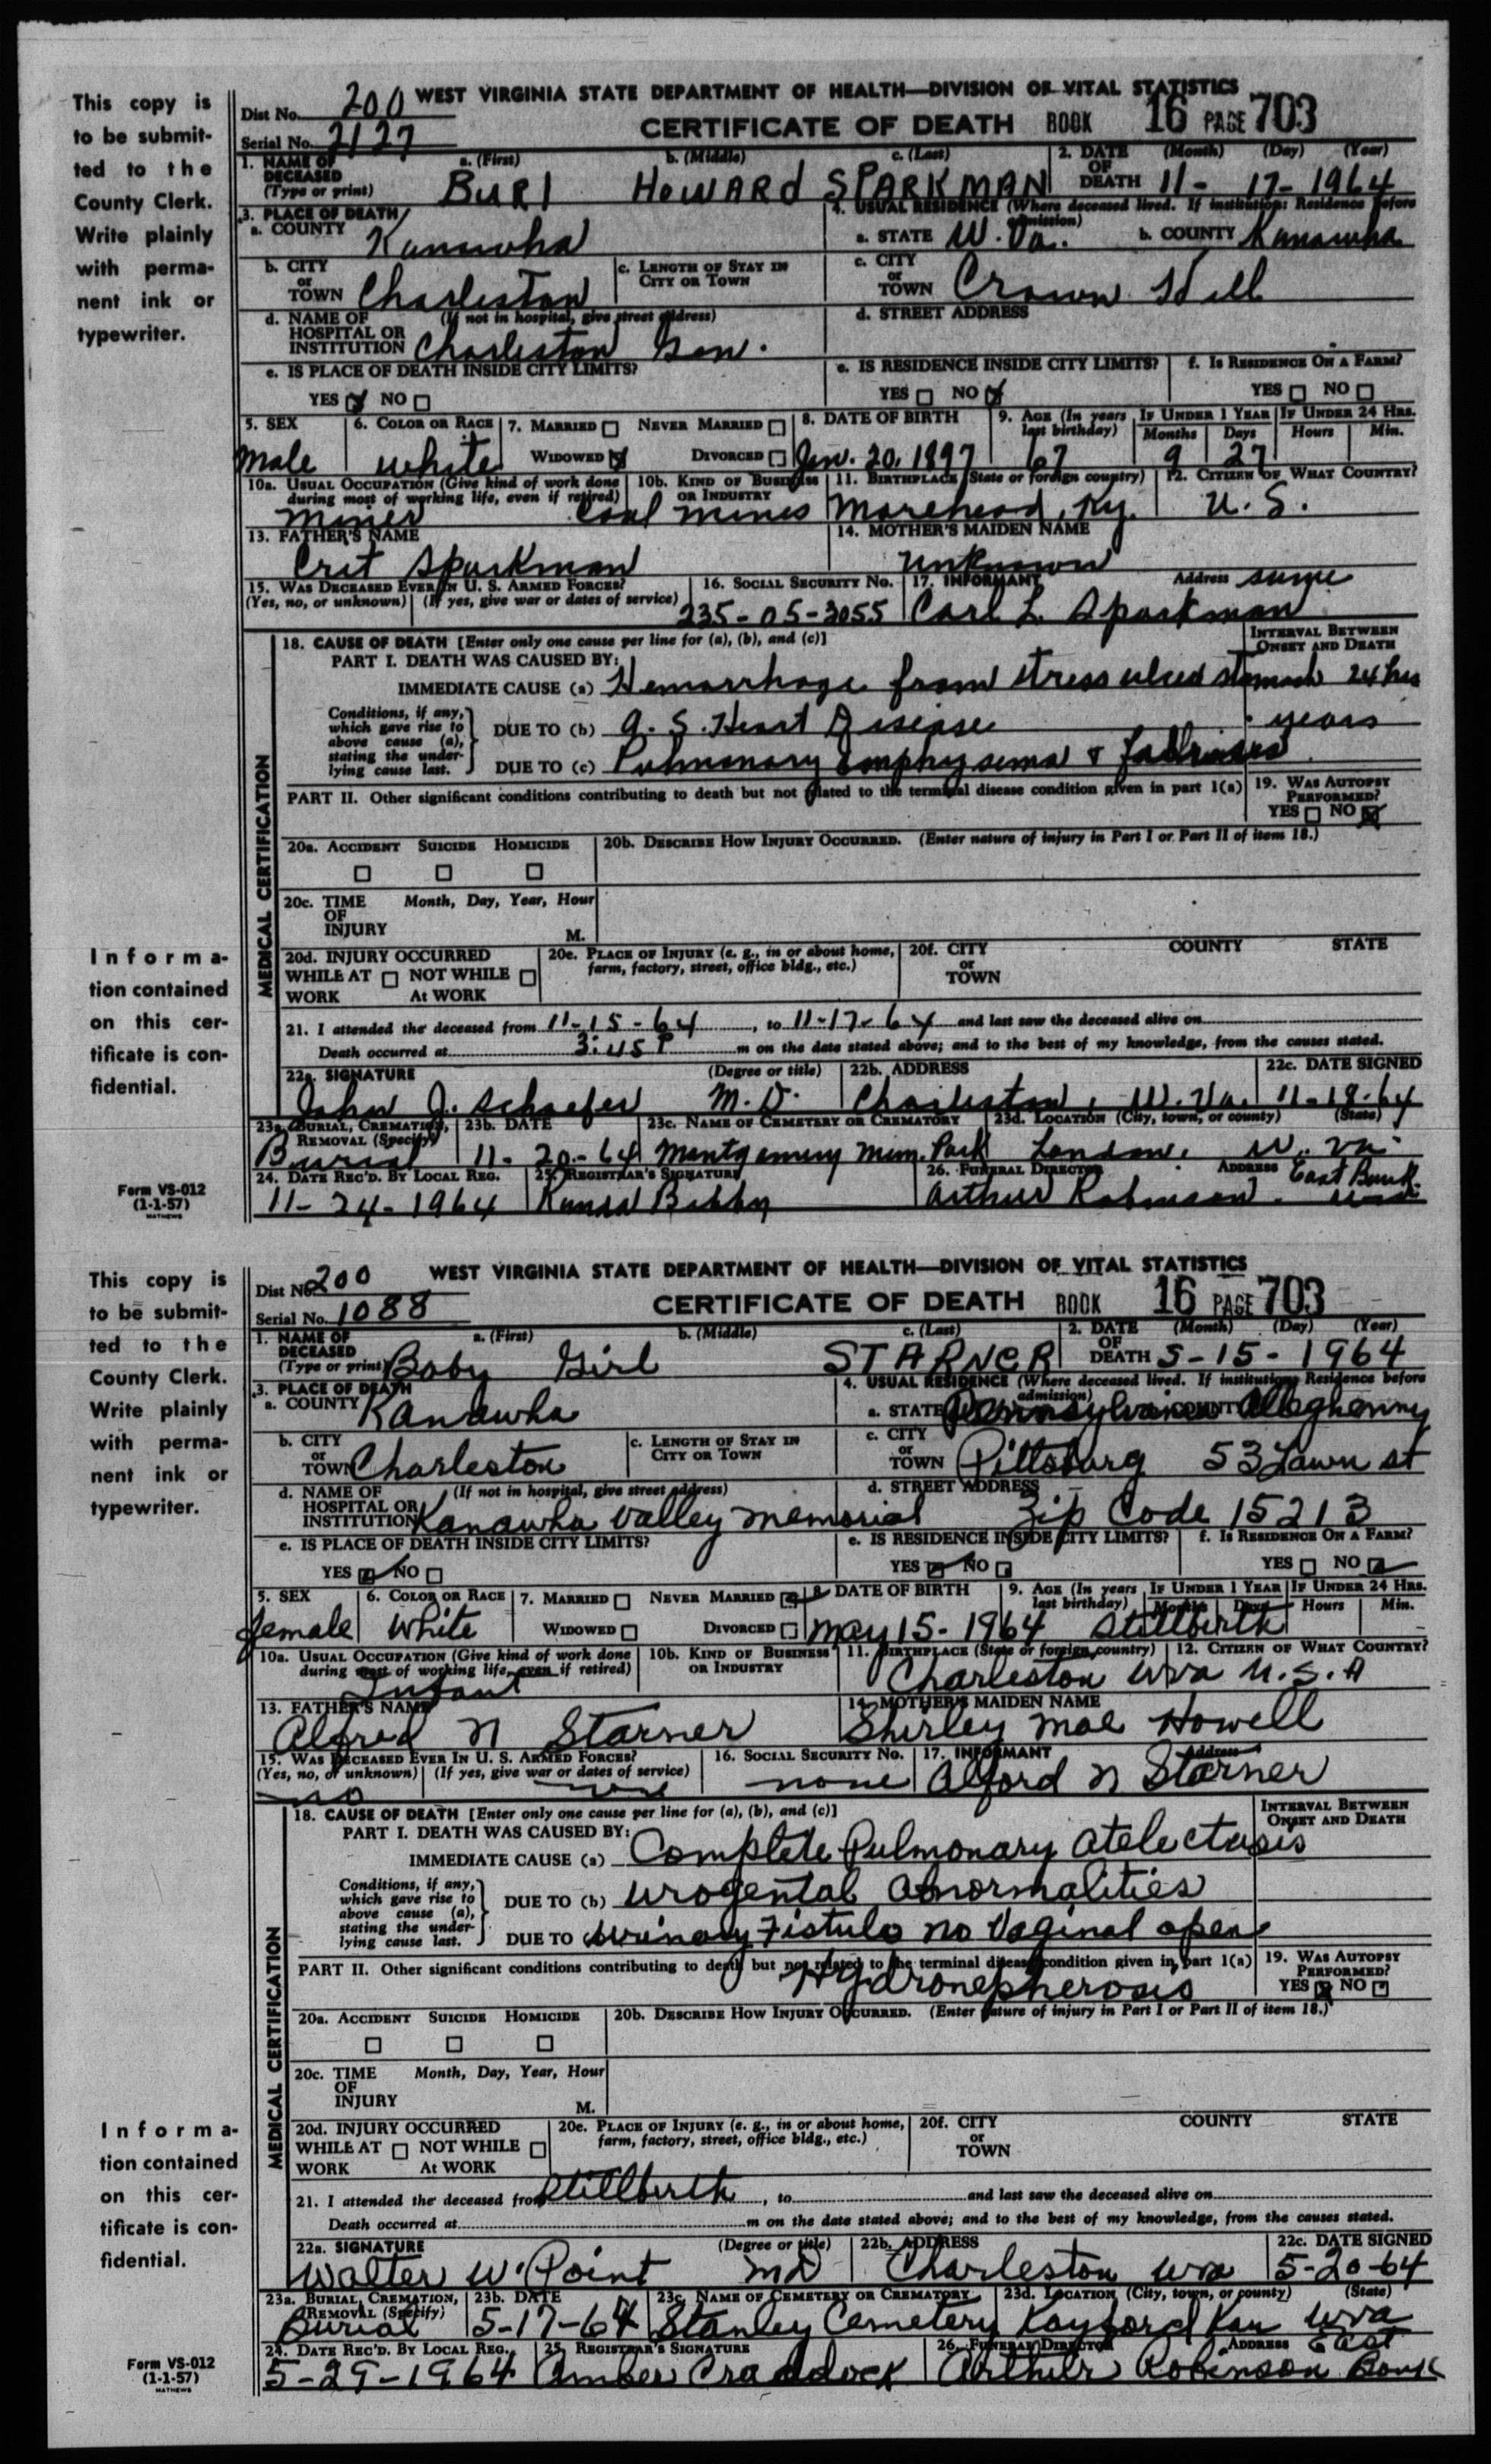 This copy is
to be submit-
ted to the
County Clerk.
Write plainly
with perma-
nent ink or
typewriter.
Informa-
tion contained
on this cer-
tificate is con-
fidential.
Form VS-012
(1-1-57)
MATHEWS
WEST VIRGINIA STATE DEPARTMENT OF HEALTH—DIVISION OF VITAL STATISTICS
Dist No. 200
CERTIFICATE OF DEATH BOOK 16 PAGE 703
Serial No. 2127
1. NAME OF DECEASED (Type or print) a. (First) b. (Middle) c. (Last) 2. DATE OF DEATH (Month) (Day) (Year)
Burl Howard SPARKMAN 11- 17- 1964
3. PLACE OF DEATH 4. USUAL RESIDENCE (Where deceased lived. If institution: Residence before admission)
a. COUNTY Kanawha a. STATE W. Va. b. COUNTY Kanawha
b. CITY or TOWN Charleston c. LENGTH OF STAY IN CITY OR TOWN c. CITY or TOWN Crown Hill
d. NAME OF HOSPITAL OR INSTITUTION (If not in hospital, give street address) Charleston Gen. d. STREET ADDRESS
e. IS PLACE OF DEATH INSIDE CITY LIMITS? e. IS RESIDENCE INSIDE CITY LIMITS? f. IS RESIDENCE ON A FARM?
YES NO YES NO YES NO
5. SEX 6. COLOR OR RACE 7. MARRIED NEVER MARRIED 8. DATE OF BIRTH 9. AGE (In years last birthday) IF UNDER 1 YEAR IF UNDER 24 HRS.
WIDOWED DIVORCED Months Days Hours Min.
Male white Jan. 20, 1897 67 9 27
10a. USUAL OCCUPATION (Give kind of work done during most of working life, even if retired) 10b. KIND OF BUSINESS OR INDUSTRY 11. BIRTHPLACE (State or foreign country) 12. CITIZEN OF WHAT COUNTRY?
Miner Coal mines Morehead, Ky. U. S.
13. FATHER'S NAME 14. MOTHER'S MAIDEN NAME
Crit Sparkman unknown
15. WAS DECEASED EVER IN U. S. ARMED FORCES? 16. SOCIAL SECURITY NO. 17. INFORMANT Address same
(Yes, no, or unknown) (If yes, give war or dates of service) 235-05-3055 Carl L. Sparkman
MEDICAL CERTIFICATION
18. CAUSE OF DEATH [Enter only one cause per line for (a), (b), and (c)] INTERVAL BETWEEN ONSET AND DEATH
PART I. DEATH WAS CAUSED BY:
IMMEDIATE CAUSE (a) Hemorrhage from stress ulced stomach 24 hrs
Conditions, if any, which gave rise to above cause (a), stating the underlying cause last.
DUE TO (b) A. S. Heart Disease years
DUE TO (c) Pulmonary Emphysema &
PART II. Other significant conditions contributing to death but not related to the terminal disease condition given in part 1(a) 19. WAS AUTOPSY PERFORMED?
YES NO
20a. ACCIDENT SUICIDE HOMICIDE 20b. DESCRIBE HOW INJURY OCCURRED. (Enter nature of injury in Part I or Part II of item 18.)
20c. TIME OF INJURY Month, Day, Year, Hour M.
20d. INJURY OCCURRED WHILE AT WORK NOT WHILE At WORK 20e. PLACE OF INJURY (e. g., in or about home, farm, factory, street, office bldg., etc.) 20f. CITY or TOWN COUNTY STATE
21. I attended the deceased from 11-15-64, to 11-17-64 and last saw the deceased alive on
Death occurred at 3:45 P m on the date stated above; and to the best of my knowledge, from the causes stated.
22a. SIGNATURE (Degree or title) 22b. ADDRESS 22c. DATE SIGNED
John J. Schaefer M. D. Charleston, W. Va. 11-18-64
23a. BURIAL, CREMATION, REMOVAL (Specify) 23b. DATE 23c. NAME OF CEMETERY OR CREMATORY 23d. LOCATION (City, town, or county) (State)
Burial 11-20-64 Montgomery Mem. Park London, W. Va.
24. DATE REC'D. BY LOCAL REG. 25. REGISTRAR'S SIGNATURE 26. FUNERAL DIRECTOR ADDRESS East Bank
11-24-1964 Bibby Arthur Robinson
This copy is
to be submit-
ted to the
County Clerk.
Write plainly
with perma-
nent ink or
typewriter.
Informa-
tion contained
on this cer-
tificate is con-
fidential.
Form VS-012
(1-1-57)
MATHEWS
WEST VIRGINIA STATE DEPARTMENT OF HEALTH—DIVISION OF VITAL STATISTICS
Dist No. 200
CERTIFICATE OF DEATH BOOK 16 PAGE 703
Serial No. 1088
1. NAME OF DECEASED (Type or print) a. (First) b. (Middle) c. (Last) 2. DATE OF DEATH (Month) (Day) (Year)
Baby Girl STARNER 5-15-1964
3. PLACE OF DEATH 4. USUAL RESIDENCE (Where deceased lived. If institution: Residence before admission)
a. COUNTY Kanawha a. STATE Pennsylvania Alleghenny
b. CITY or TOWN Charleston c. LENGTH OF STAY IN CITY OR TOWN c. CITY or TOWN Pittsburg 53 Lawn st
d. NAME OF HOSPITAL OR INSTITUTION (If not in hospital, give street address) Kanawha Valley Memorial d. STREET ADDRESS Zip Code 15213
e. IS PLACE OF DEATH INSIDE CITY LIMITS? e. IS RESIDENCE INSIDE CITY LIMITS? f. IS RESIDENCE ON A FARM?
YES NO YES NO YES NO
5. SEX 6. COLOR OR RACE 7. MARRIED NEVER MARRIED 8. DATE OF BIRTH 9. AGE (In years last birthday) IF UNDER 1 YEAR IF UNDER 24 HRS.
WIDOWED DIVORCED Months Days Hours Min.
female White May 15-1964 Stillbirth
10a. USUAL OCCUPATION (Give kind of work done during most of working life, even if retired) 10b. KIND OF BUSINESS OR INDUSTRY 11. BIRTHPLACE (State or foreign country) 12. CITIZEN OF WHAT COUNTRY?
Infant Charleston Wva U.S.A
13. FATHER'S NAME 14. MOTHER'S MAIDEN NAME
Alfred N Starner Shirley Mae Howell
15. WAS DECEASED EVER IN U. S. ARMED FORCES? 16. SOCIAL SECURITY NO. 17. INFORMANT Address
(Yes, no, or unknown) (If yes, give war or dates of service)
no none Alford N Starner
MEDICAL CERTIFICATION
18. CAUSE OF DEATH [Enter only one cause per line for (a), (b), and (c)] INTERVAL BETWEEN ONSET AND DEATH
PART I. DEATH WAS CAUSED BY:
IMMEDIATE CAUSE (a) Complete Pulmonary atelectasis
Conditions, if any, which gave rise to above cause (a), stating the underlying cause last.
DUE TO (b) urogental abnormalities
DUE TO urinary Fistula no Vaginal open
PART II. Other significant conditions contributing to death but not related to the terminal disease condition given in part 1(a) 19. WAS AUTOPSY PERFORMED?
Hydronepherosis YES NO
20a. ACCIDENT SUICIDE HOMICIDE 20b. DESCRIBE HOW INJURY OCCURRED. (Enter nature of injury in Part I or Part II of item 18.)
20c. TIME OF INJURY Month, Day, Year, Hour M.
20d. INJURY OCCURRED WHILE AT WORK NOT WHILE At WORK 20e. PLACE OF INJURY (e. g., in or about home, farm, factory, street, office bldg., etc.) 20f. CITY or TOWN COUNTY STATE
21. I attended the deceased from Stillbirth, to and last saw the deceased alive on
Death occurred at m on the date stated above; and to the best of my knowledge, from the causes stated.
22a. SIGNATURE (Degree or title) 22b. ADDRESS 22c. DATE SIGNED
Walter W Point MD Charleston Wva 5-20-64
23a. BURIAL, CREMATION, REMOVAL (Specify) 23b. DATE 23c. NAME OF CEMETERY OR CREMATORY 23d. LOCATION (City, town, or county) (State)
Burial 5-17-64 Stanley Cemetery Kayford Kan Wva
24. DATE REC'D. BY LOCAL REG. 25. REGISTRAR'S SIGNATURE 26. FUNERAL DIRECTOR ADDRESS East
5-29-1964 Amber Craddock Arthur Robinson Bank